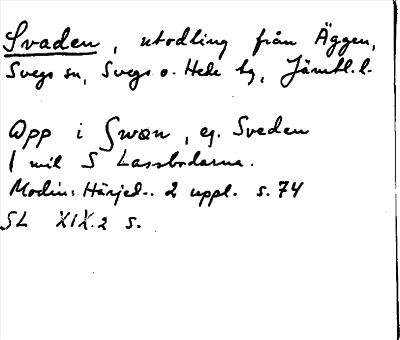 Svaden, utodling från Äggen,
Svegs sn, Svegs o. Hede tg, Jämtl. l.
Opp i Swæn, eg. Sveden
1 mil S Lassbodarna.
Modin: Härjed. 2 uppl. s. 74
SL XIX.2 s.